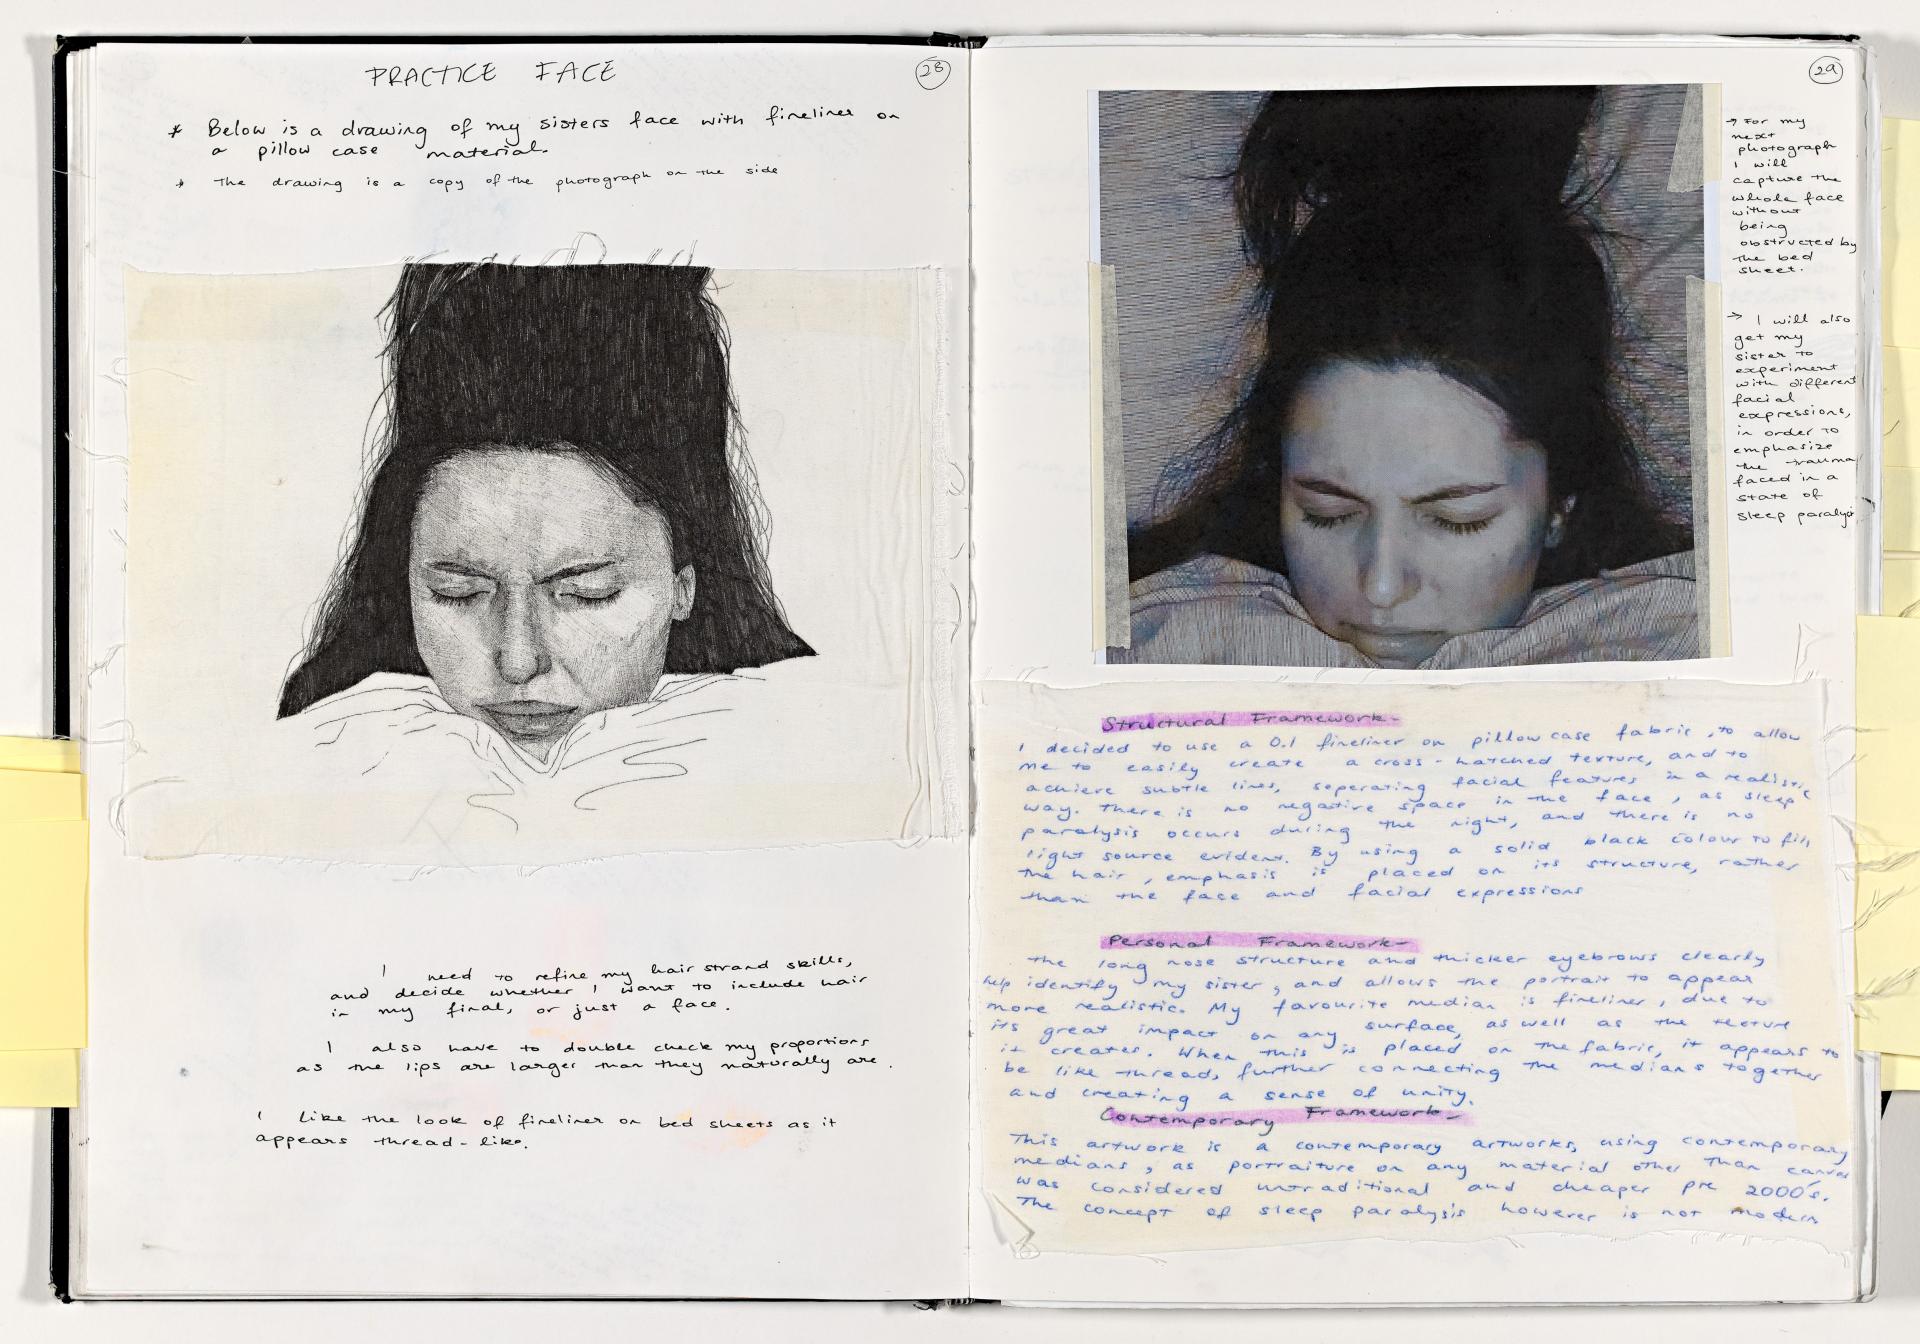 PRACTICE FACE
28
* Below is a drawing of my sisters face with fineliner on
a pillow case material.
* The drawing is a copy of the photograph on the side
I need to refine my hair strand skills,
and decide whether I want to include hair
in my final, or just a face.
I also have to double check my proportions
as the lips are larger than they naturally are.
I like the look of fineliner on bed sheets as it
appears thread-like.
29
→ For my
next
photograph
I will
capture the
whole face
without
being
obstructed by
the bed
sheet.
→ I will also
get my
sister to
experiment
with different
facial
expressions,
in order to
emphasize
the trauma
faced in a
state of
sleep paralysis
Structural Framework-
I decided to use a 0.1 fineliner on pillow case fabric, to allow
me to easily create a cross-hatched texture, and to
achieve subtle lines, seperating facial features in a realistic
way. There is no negative space in the face, as sleep
paralysis occurs during the night, and there is no
light source evident. By using a solid black colour to fill
the hair, emphasis is placed on its structure, rather
than the face and facial expressions
Personal Framework-
The long nose structure and thicker eyebrows clearly
help identify my sister, and allows the portrait to appear
more realistic. My favourite median is fineliner, due to
its great impact on any surface, as well as the texture
it creates. When this is placed on the fabric, it appears to
be like thread, further connecting the medians together
and creating a sense of unity.
Contemporary Framework-
This artwork is a contemporary artworks, using contemporary
medians, as portraiture on any material other than canvas
was considered untraditional and cheaper pre 2000's.
The concept of sleep paralysis however is not modern